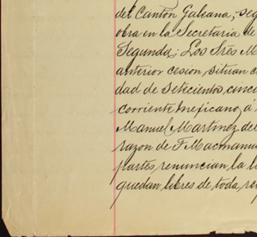 del Cantón Galeana; seg
obra en la Secretaria de
Segunda: Los Tres M
anterior cesion, situan c
dad de Setecientos, cinc
corriente Mejicano, á
Manuel Martinez del
razon de F. Macmanu
partes, renuncian, la l
quedan, libres de, toda, re